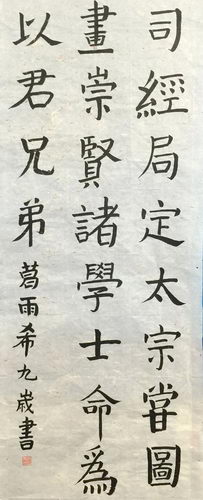 司經局定太宗嘗圖
畫崇賢諸學士命為
以君兄弟 葛雨希九歲書